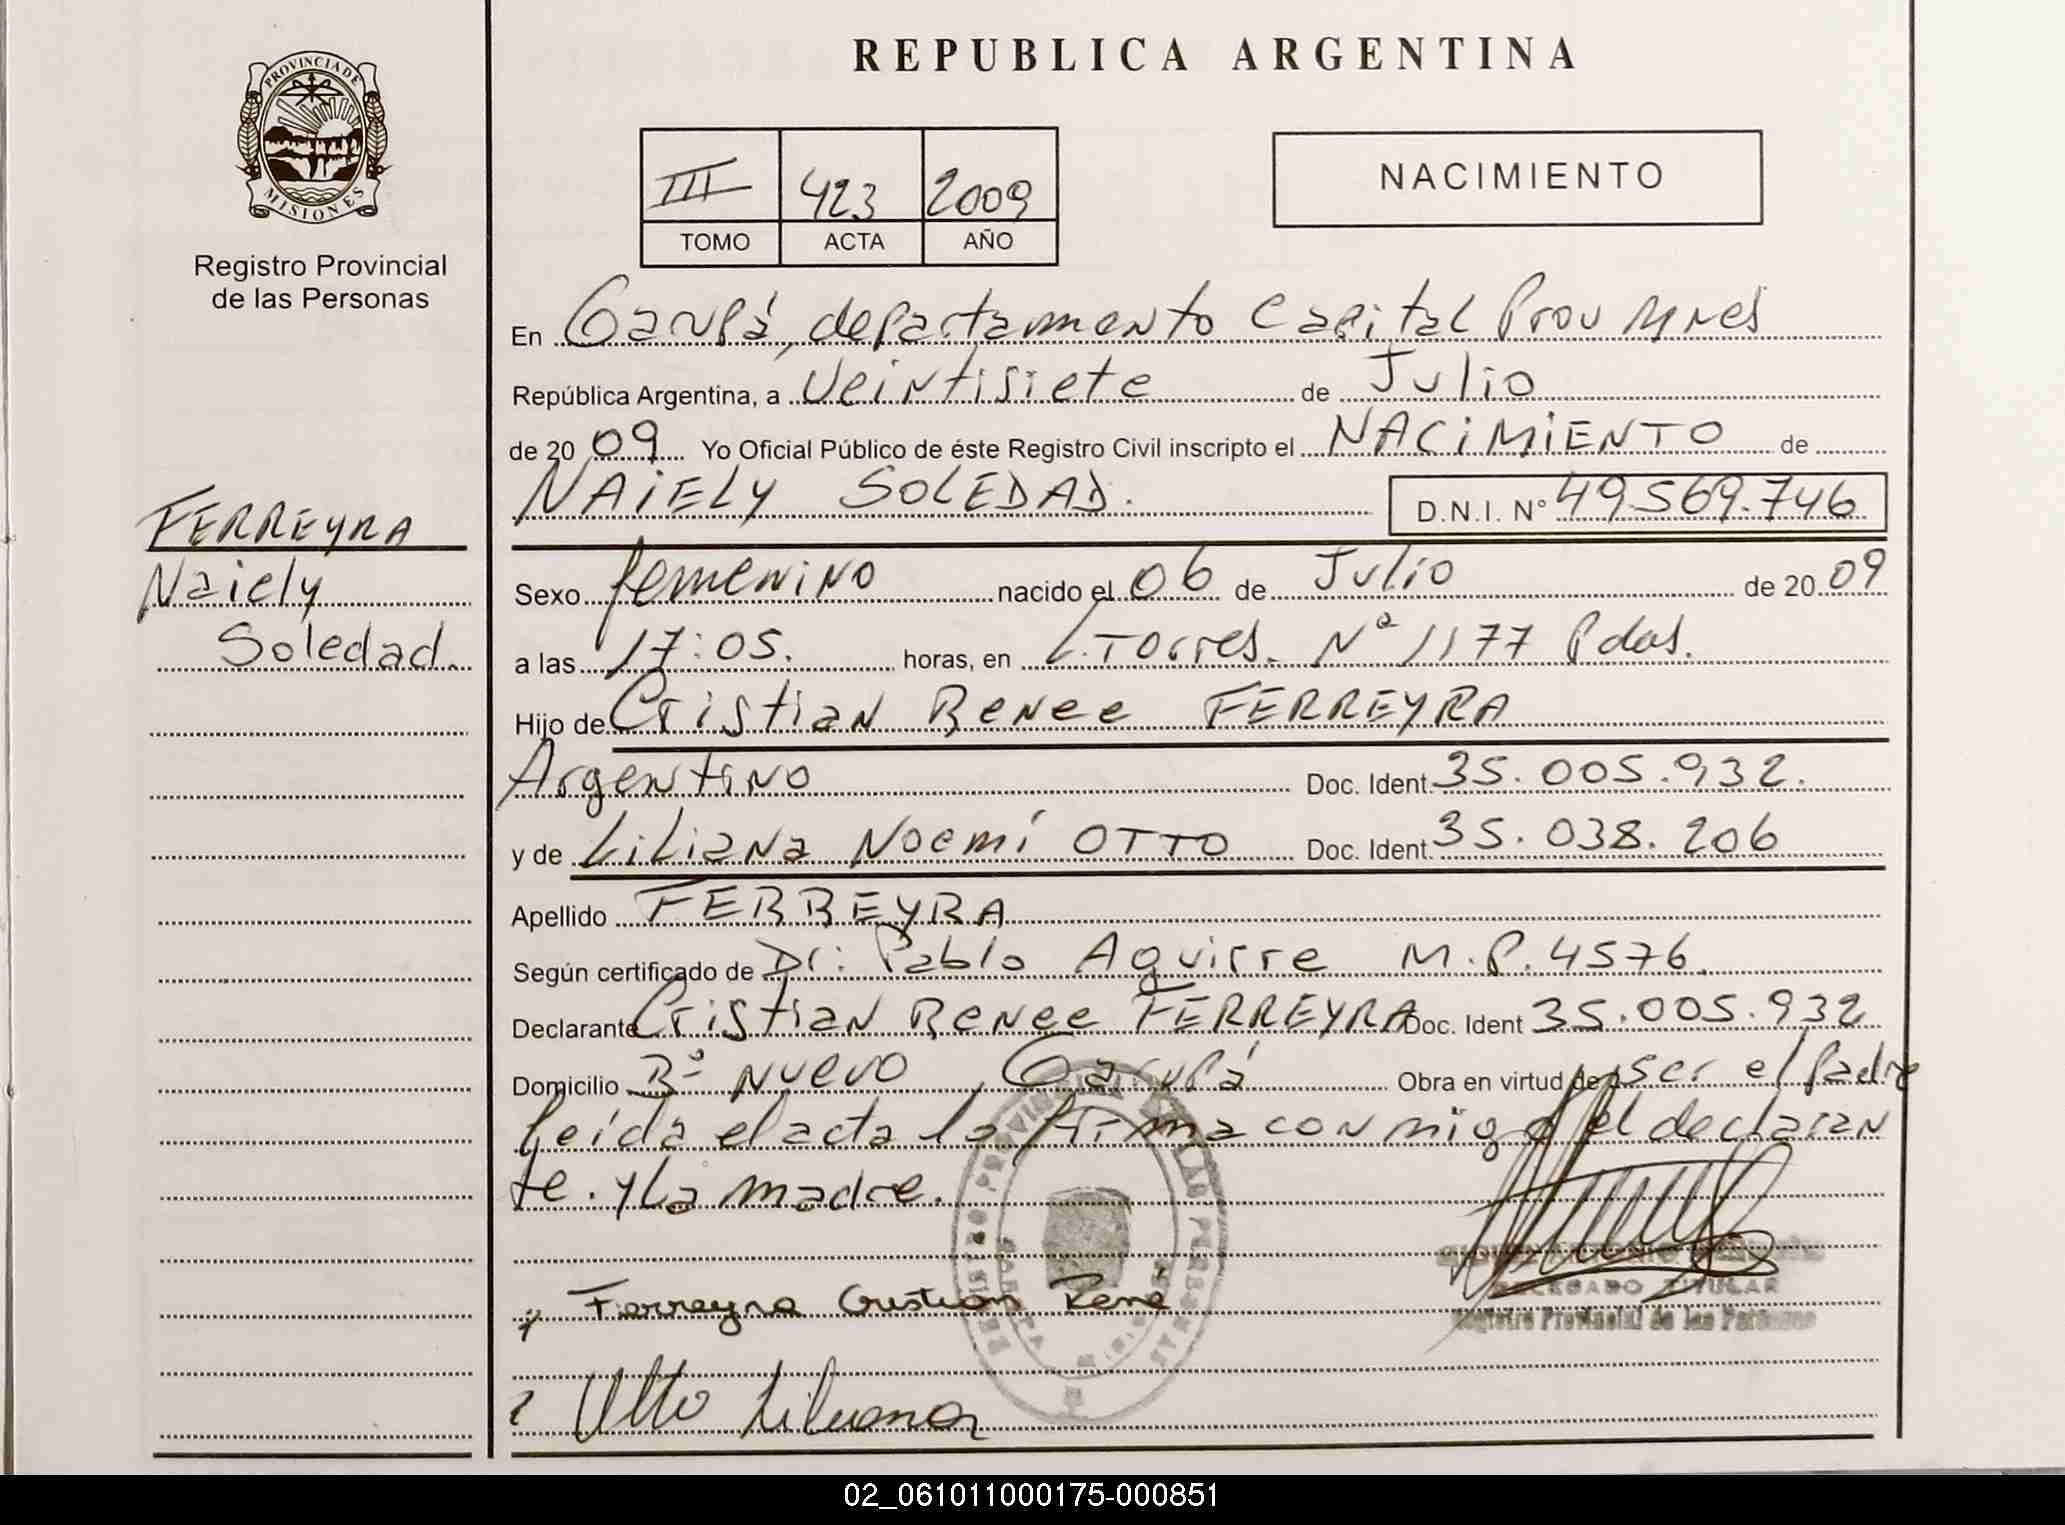 REPUBLICA ARGENTINA
PROVINCIA DE
MISIONES
Registro Provincial
de las Personas
III 423 2009
TOMO ACTA AÑO
NACIMIENTO
FERREYRA
Naiely
Soledad.
En Garupá, departamento Capital Prov Mnes
República Argentina, a Veintisiete de Julio
de 2009 Yo Oficial Público de éste Registro Civil inscripto el NACIMIENTO de
NAIELY SOLEDAD. D.N.I. Nº 49.569.746
Sexo femenino nacido el 06 de Julio de 2009
a las 17:05. horas, en L. Torres. Nº 1177 Pdas.
Hijo de Cristian Renee FERREYRA
Argentino Doc. Ident. 35.005.932.
y de Liliana Noemí OTTO Doc. Ident. 35.038.206
Apellido FERREYRA
Según certificado de Dr: Pablo Aguirre M.P. 4576.
Declarante Cristian Renee FERREYRA Doc. Ident 35.005.932
Domicilio Bº Nuevo, Garupá Obra en virtud de ser el padre
Leída el acta la firma conmigo el declaran
te. y la madre.
Ferreyra Cristian René
DELEGADO TITULAR
Registro Provincial de las Personas
Otto Liliana
02_061011000175-000851